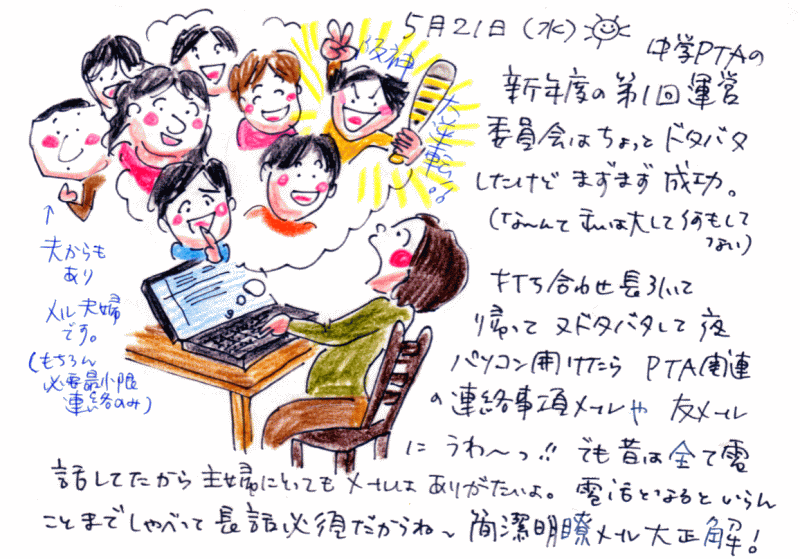 5月21日(水)
中学PTAの
新年度の第1回運営
委員会はちょっとドタバタ
したけどまずまず成功。
(なーんて私は大して何もして
ない)
打ち合わせ長引いて
帰って又ドタバタして夜
パソコン開けたらPTA関連
の連絡事項メールや友メール
にうわ〜っ!!でも昔は全て電
話してたから主婦にとってもメールはありがたいよ。電話となるといらん
ことまでしゃべって長話必須だからね〜簡潔明瞭メール大正解!
阪神
大逆転!!
↑
夫からも
あり
メル夫婦
です。
(もちろん
必要最小限
連絡のみ)